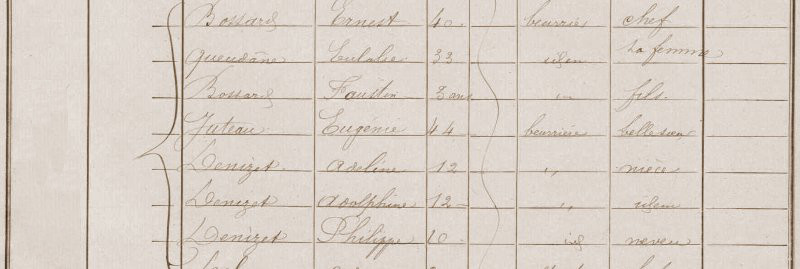 Bossard Ernest 40 beurrier chef
Queudane Eulalie 33 idem sa femme
Bossard Faustin 3 ans " fils
Juteau Eugenie 44 beurrière belle sœur
Denizet Adeline 12 " nièce
Denizet Adolphine 12 " idem
Denizet Philippe 10 id neveu